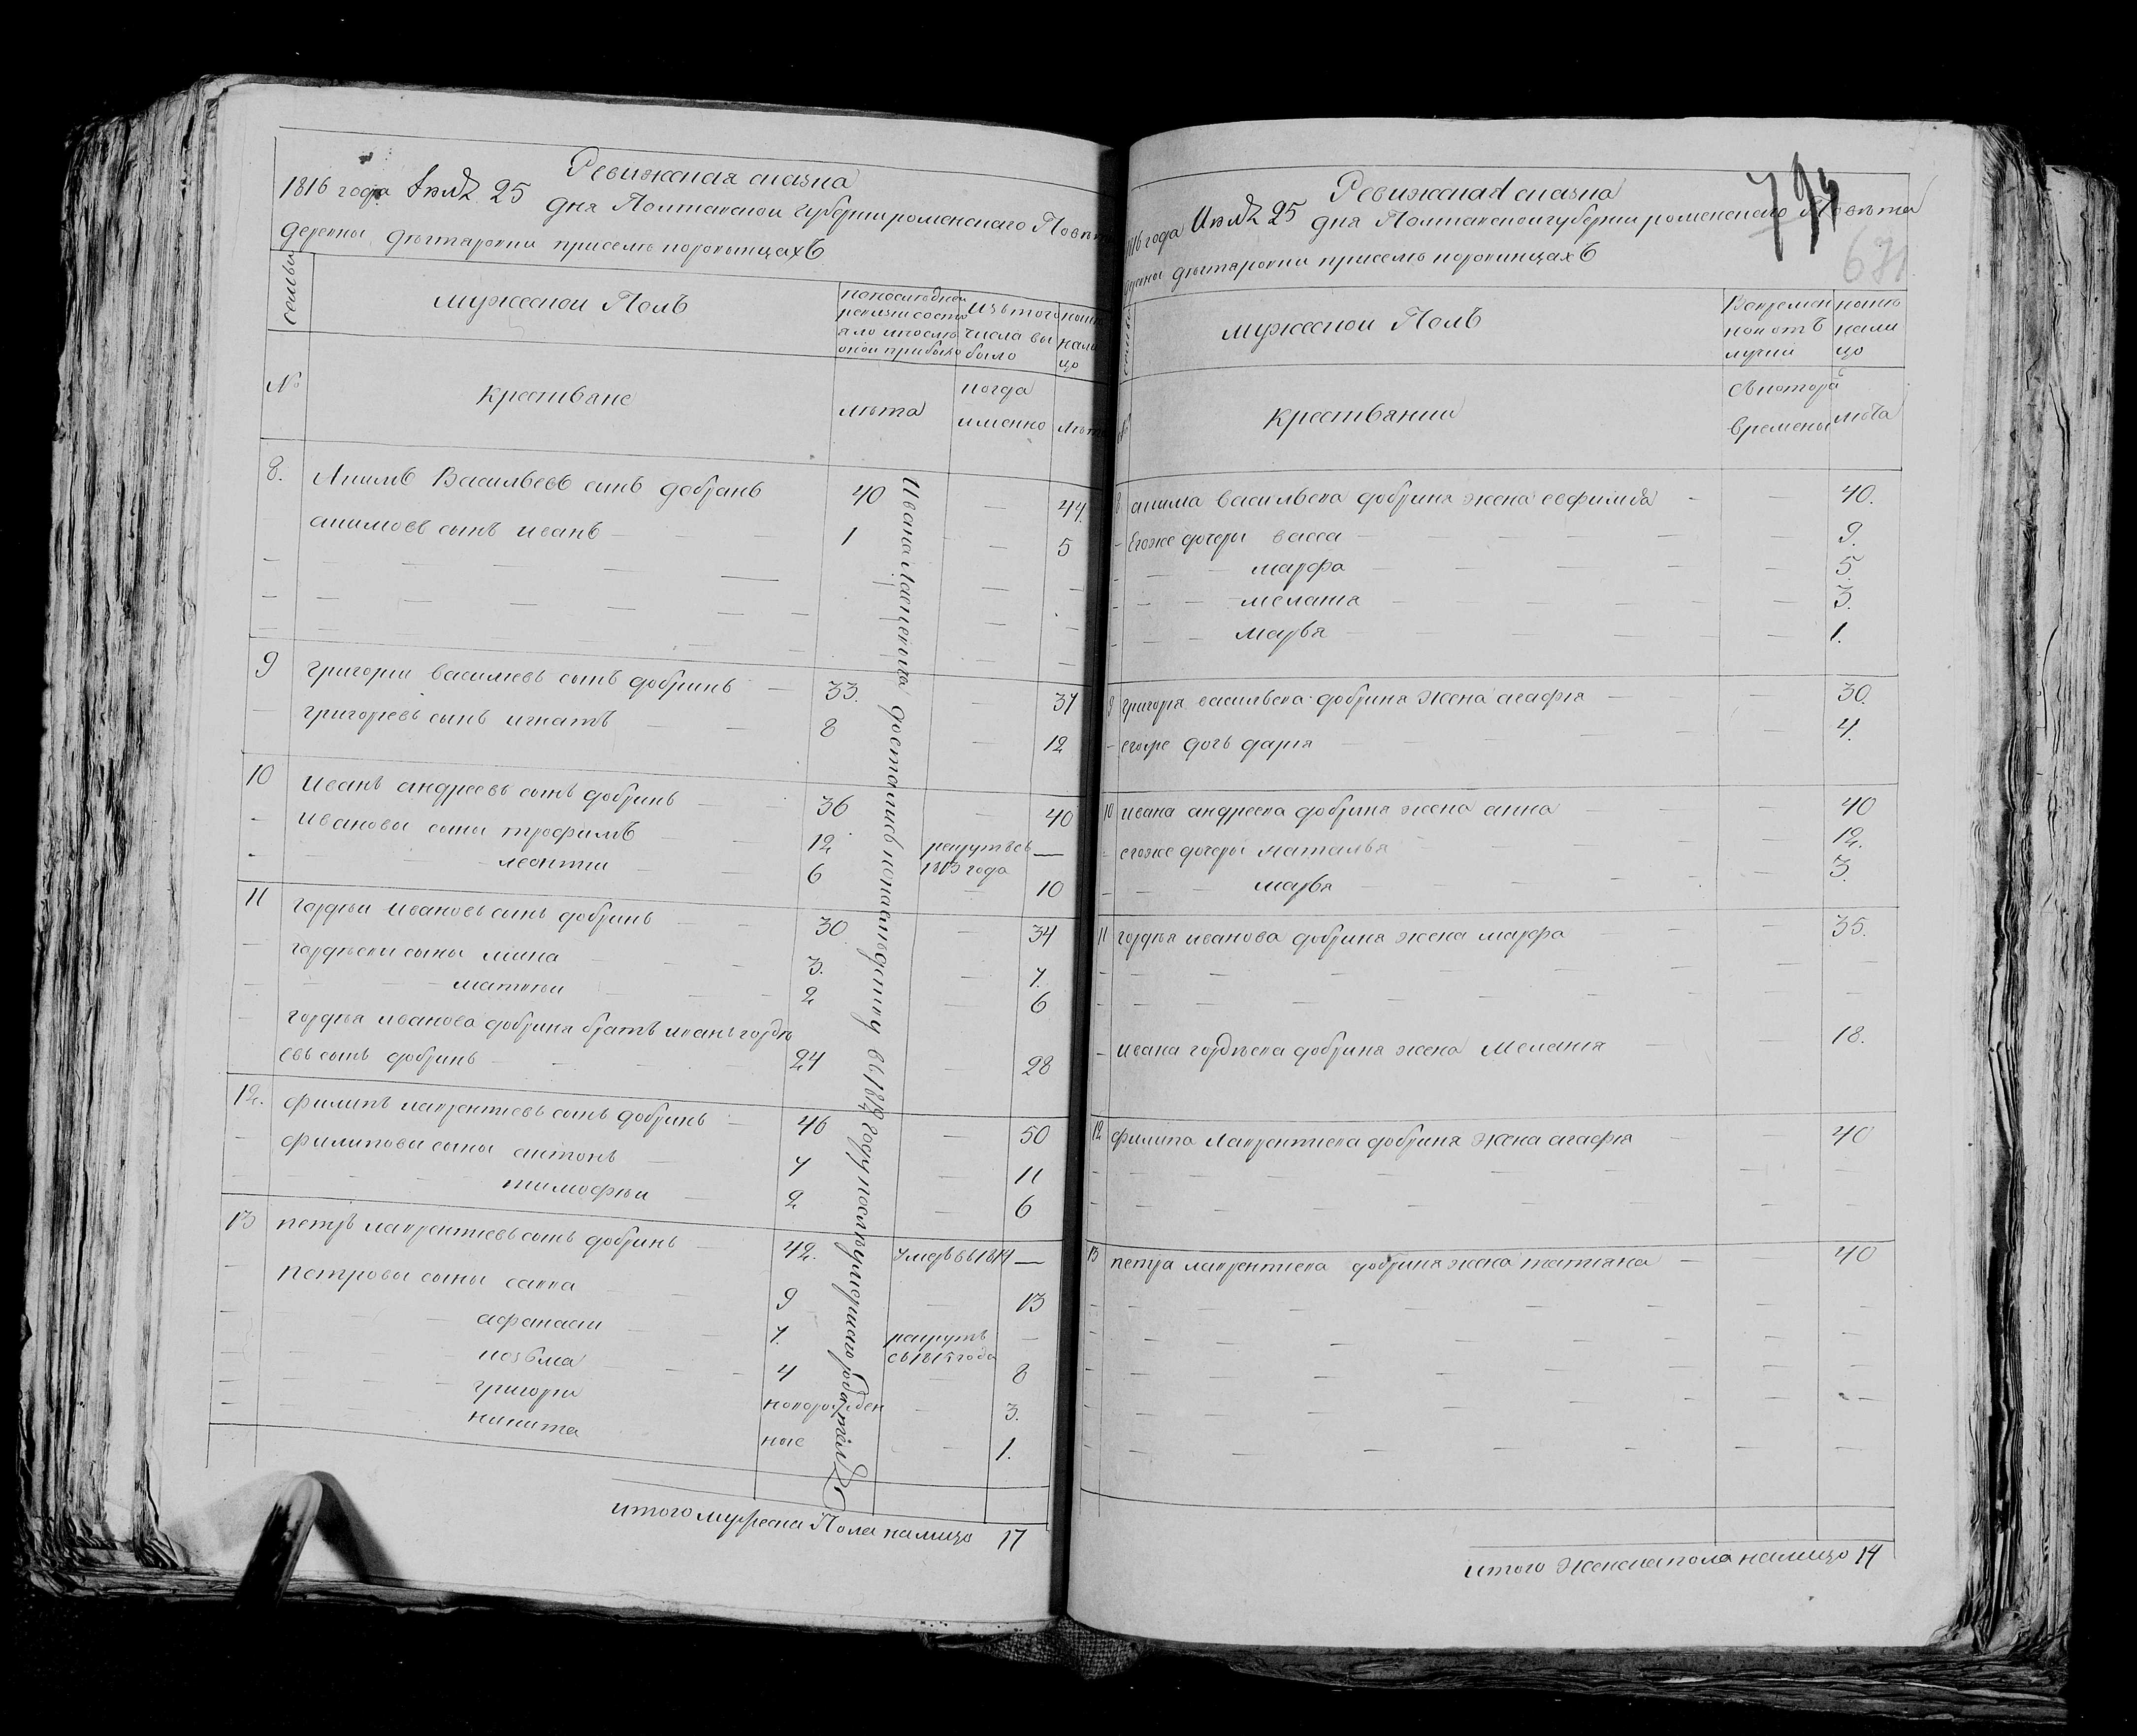 Ревижская сказка
1816 года 25 дня Полтавской губерни роменского Повѣта
деревны дѣгтяровки присель коровынцахъ
семьи
мужескои Полъ
попоследней ревизи состояло и после оной прибыло
изътого числа выбыло
ныне налицо
№
крестьяне
лѣта
когда именно
лѣта
8. Акимъ Васильевъ синъ добринь 40 — 44.
акимовъ сынъ иванъ — 1 — 5
9 григории василиевъ сынъ добринъ — 33. — 37
григориевъ сынъ игнатъ — 8 — 12
10 иванъ андреевъ сынъ добринь — 36 — 40
ивановы сыны трофимъ — 12 рекрутъ съ —
леонтии — 6 1813 года 10
11 гордѣи ивановъ сынъ добринь — 30 — 34
гордѣеви сыны мина — 3. — 7.
матвѣи — 2 — 6
гордѣя иванова добриня братъ иванъ гордѣ
евъ сынъ добринь — 24 — 28
12. филипъ лаврентиевъ сынъ добринь — 46 — 50
филипови сыны антонъ — 7 — 11
тимофѣи — 2 — 6
13 петръ лаврентиевъ сынъ добринь — 42. умеръ въ 1814 —
петровы сыны савка — 9 — 13
афанасии — 7. рекрутъ —
козьма — 4 съ 1815 года 8
григори новорожден — 3.
никита ные — 1.
итого мужеска Пола налицо 17
Ревижская сказка
1816 года 25 дня Полтавской губерни роменского Повѣта
деревны дѣгтяровки присель коровинцахъ
794
681
семьи
мужескои Полъ
Вовремен ной отълучки
ныне налицо
№
крестьянии
съ котора времены
лѣта
8 акима васильева добриня жена евфимия — 40.
— Егоже дочери васса — 9.
— марфа — 5.
— мелания — 3.
— марья — 1.
9 григоря васильева добриня жена агафия — 30.
— егоже дочь дария — 4.
10 ивана андреева добриня жена анна — 40
— егоже дочеры наталья 12.
— марья — 3.
11 гордѣя иванова добриня жена марфа — 35.
— ивана гордѣева добриня жена мелания — 18.
12 филипа лаврентиева добриня жена агафия — 40
13 петра лаврентиева добриня жена татияна — 40
итого женска пола налицо 14